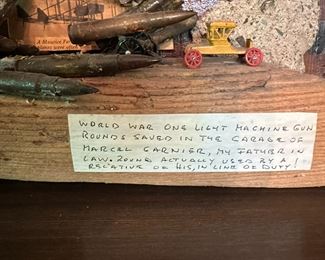 A Maurice
WORLD WAR ONE LIGHT MACHINE GUN
ROUNDS SAVED IN THE GARAGE OF
MARCEL GARNIER, MY FATHER IN
LAW. ROUND ACTUALLY USED BY A
RELATIVE OF HIS, IN LINE OF DUTY!